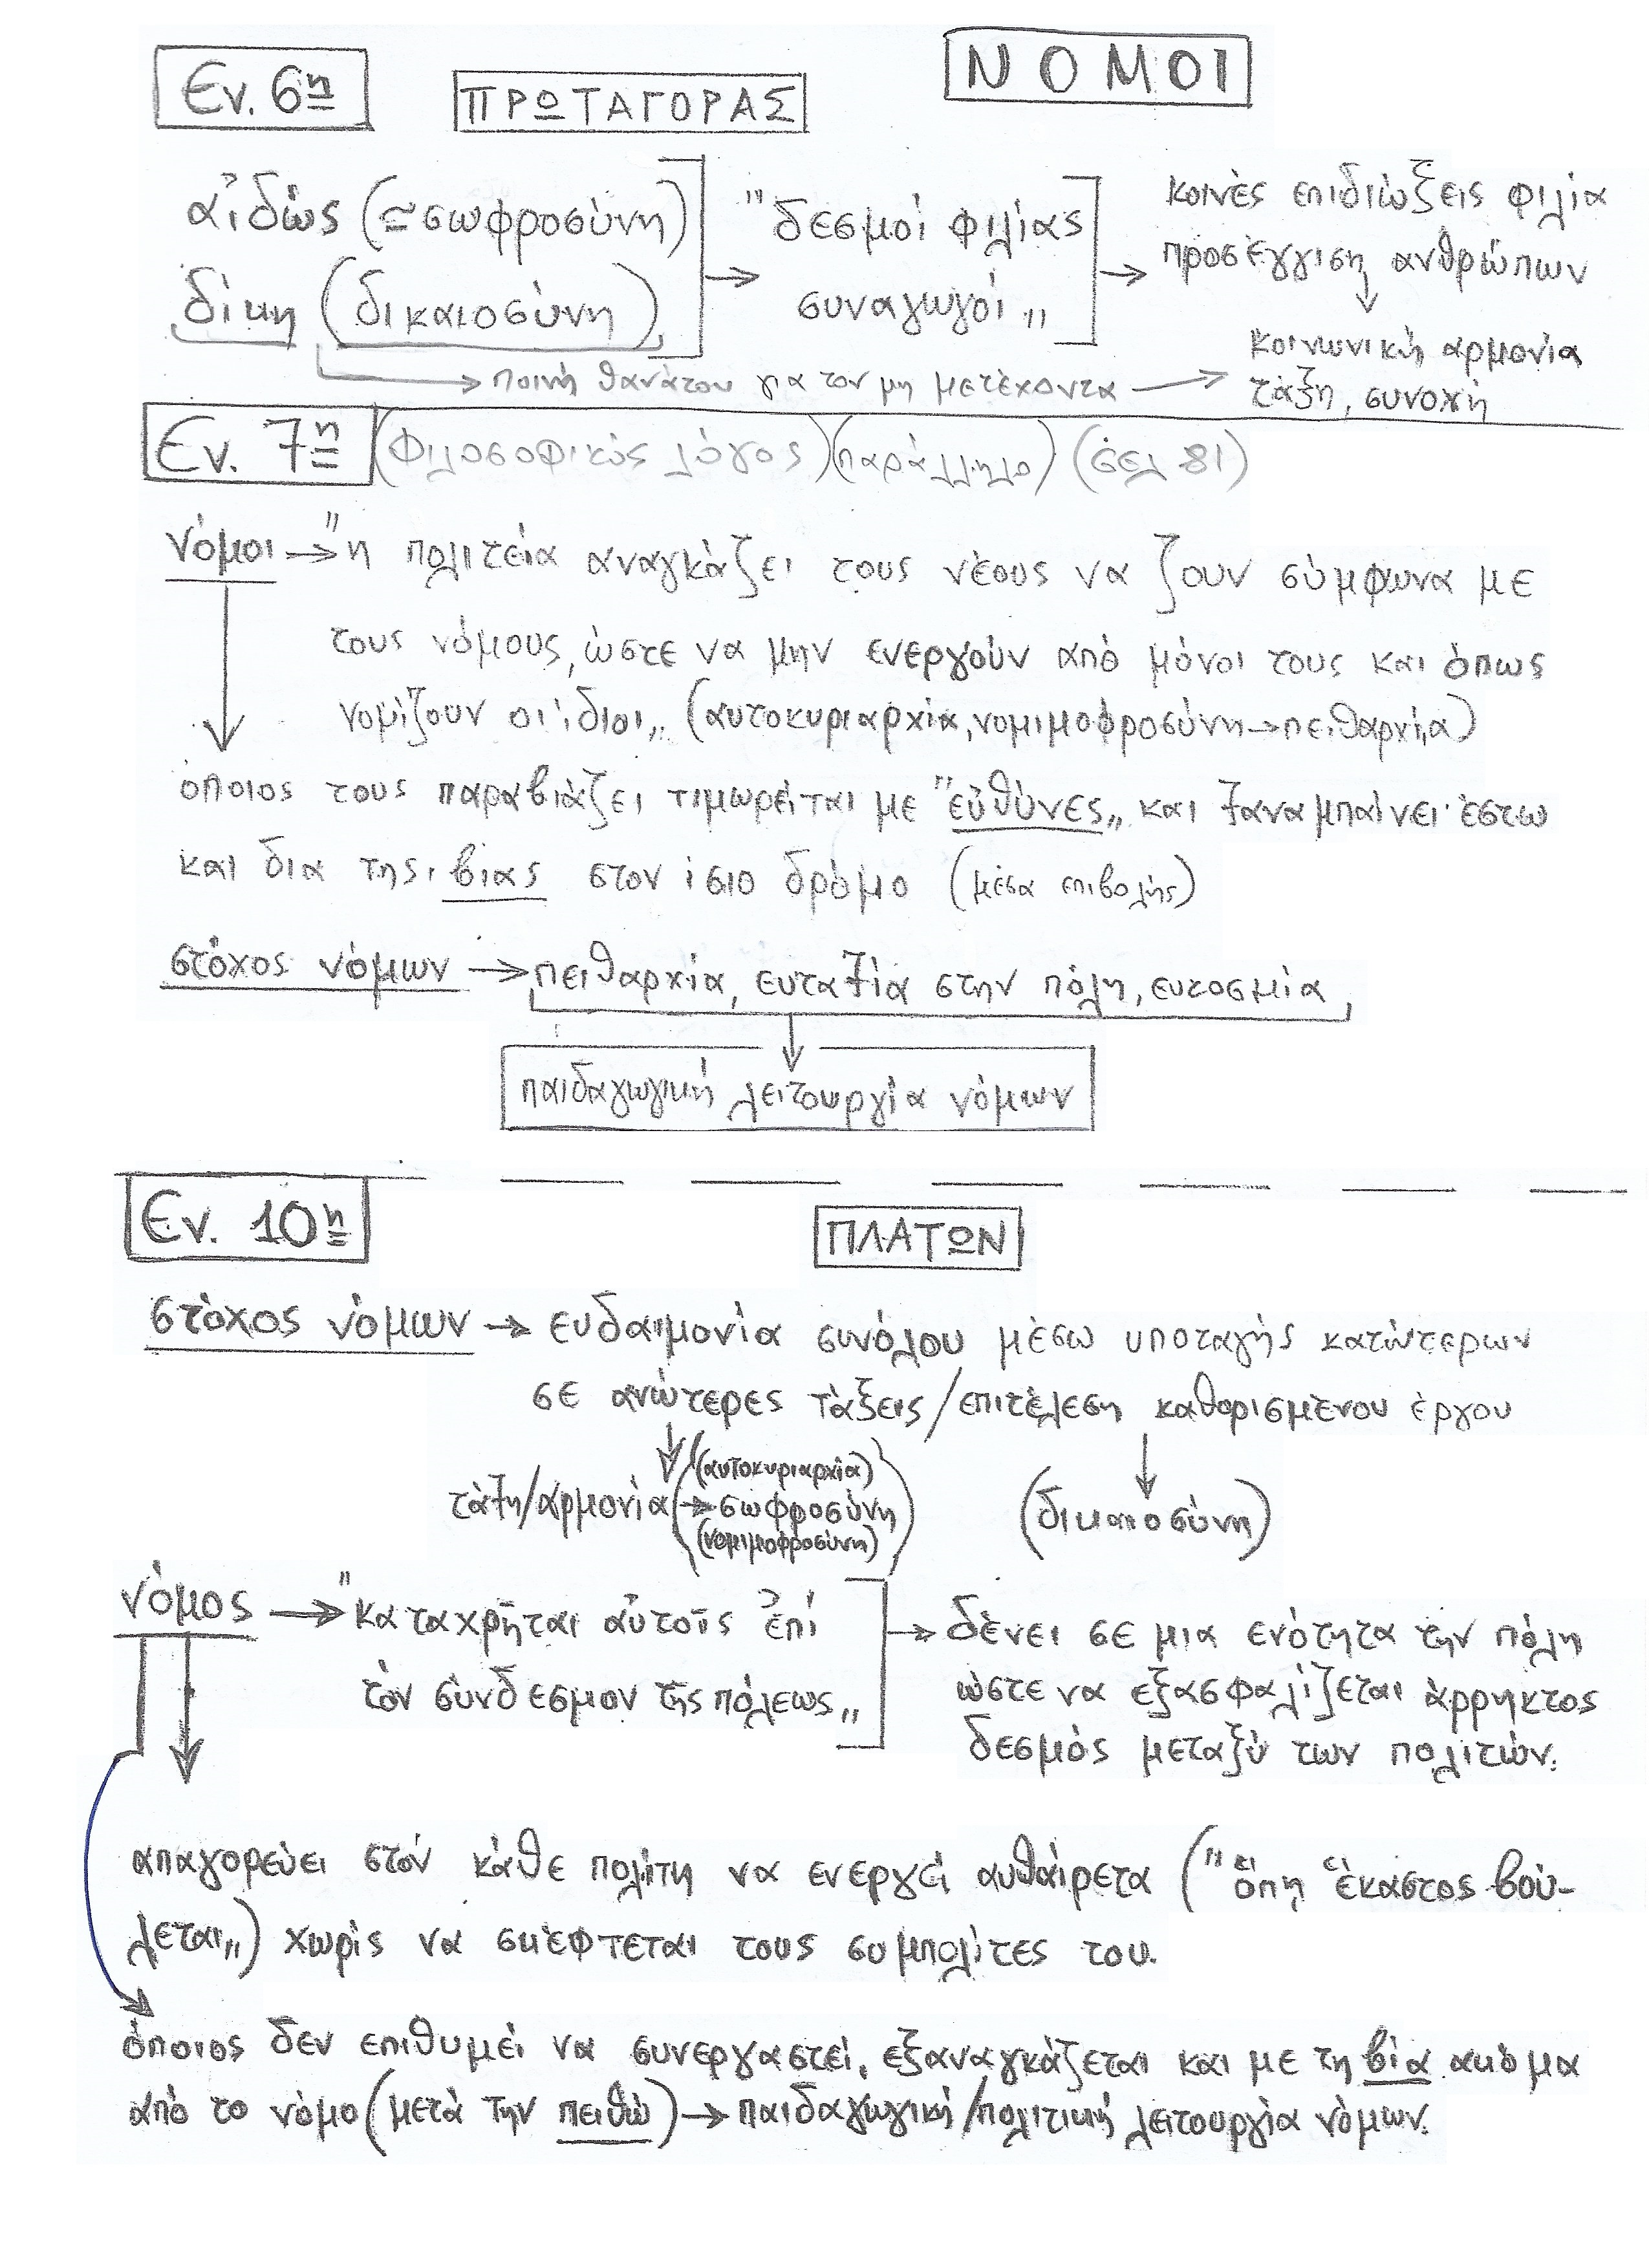 Εν. 6η
ΠΡΩΤΑΓΟΡΑΣ
ΝΟΜΟΙ
αἰδώς (≅σωφροσύνη)
δίκη (δικαιοσύνη)
→ "δεσμοί φιλίας
συναγωγοί„
→ κοινές επιδιώξεις φιλία
προσέγγιση ανθρώπων
↓
→ ποινή θανάτου για τον μη μετέχοντα →
κοινωνική αρμονία
τάξη, συνοχή
Εν. 7η (Φιλοσοφικός λόγος) (παράλληλο) (σελ 81)
νόμοι → "η πολιτεία αναγκάζει τους νέους να ζουν σύμφωνα με
τους νόμους, ώστε να μην ενεργούν από μόνοι τους και όπως
νομίζουν οι ίδιοι„ (αυτοκυριαρχία, νομιμοφροσύνη→πειθαρχία)
όποιος τους παραβιάζει τιμωρείται με "εὐθύνες„ και ξαναμπαίνει έστω
και δια της βίας στον ίσιο δρόμο (μέσα επιβολής)
στόχος νόμων → πειθαρχία, ευταξία στην πόλη, ευκοσμία
↓
παιδαγωγική λειτουργία νόμων
Εν. 10η
ΠΛΑΤΩΝ
στόχος νόμων → ευδαιμονία συνόλου μέσω υποταγής κατώτερων
σε ανώτερες τάξεις/επιτέλεση καθορισμένου έργου
(αυτοκυριαρχία)
τάξη/αρμονία (→ σωφροσύνη) (δικαιοσύνη)
(νομιμοφροσύνη)
νόμος → "καταχρῆται αὐτοῖς ἐπί
τὸν σύνδεσμον τῆς πόλεως„
→ δένει σε μια ενότητα την πόλη
ώστε να εξασφαλίζεται άρρηκτος
δεσμός μεταξύ των πολιτών.
απαγορεύει στόν κάθε πολίτη να ενεργεί αυθαίρετα ("ὅπῃ ἕκαστος βού-
λεται„) χωρίς να σκέφτεται τους συμπολίτες του.
όποιος δεν επιθυμεί να συνεργαστεί, εξαναγκάζεται και με τη βία ακόμα
από το νόμο (μετά την πειθώ) → παιδαγωγική/πολιτική λειτουργία νόμων.